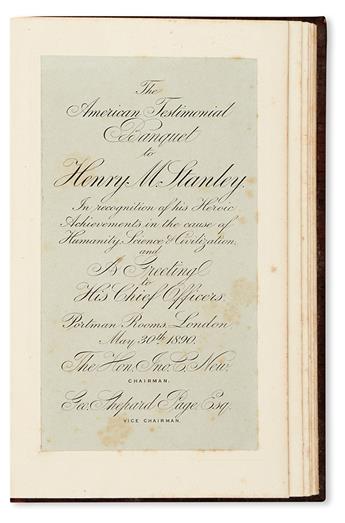 The
American Testimonial
Banquet
to
Henry M. Stanley.
In recognition of his Heroic
Achievements in the cause of
Humanity, Science & Civilization,
and
As Greeting
to
His Chief Officers.
Portman Rooms, London
May 30th 1890.
The Hon. Jno. C. New.
CHAIRMAN.
Geo. Shepard Page, Esq.
VICE CHAIRMAN.